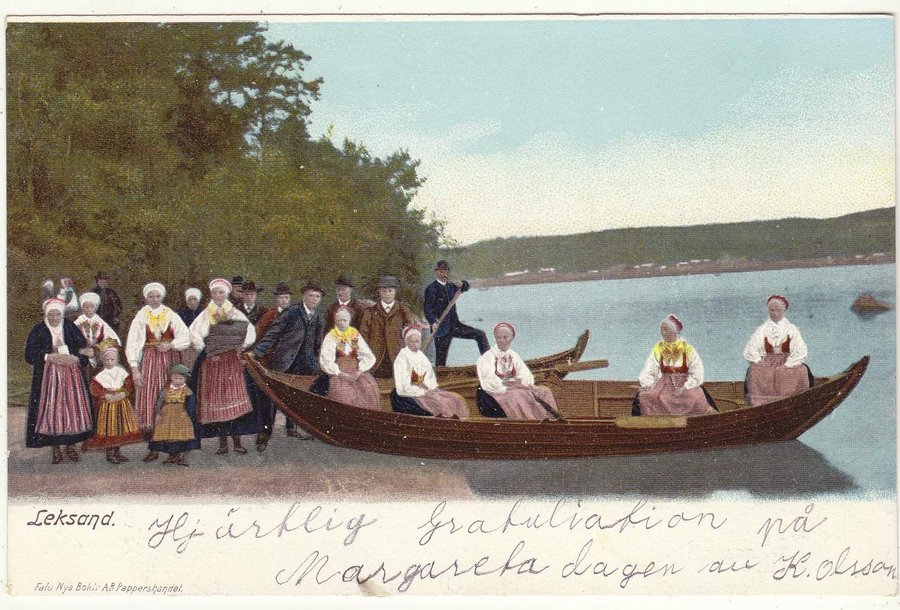 Leksand.
Hjärtlig Gratuliation på
Margareta dagen av K. Olsson
Falu Nya Bokh. A.B. Pappershandel.